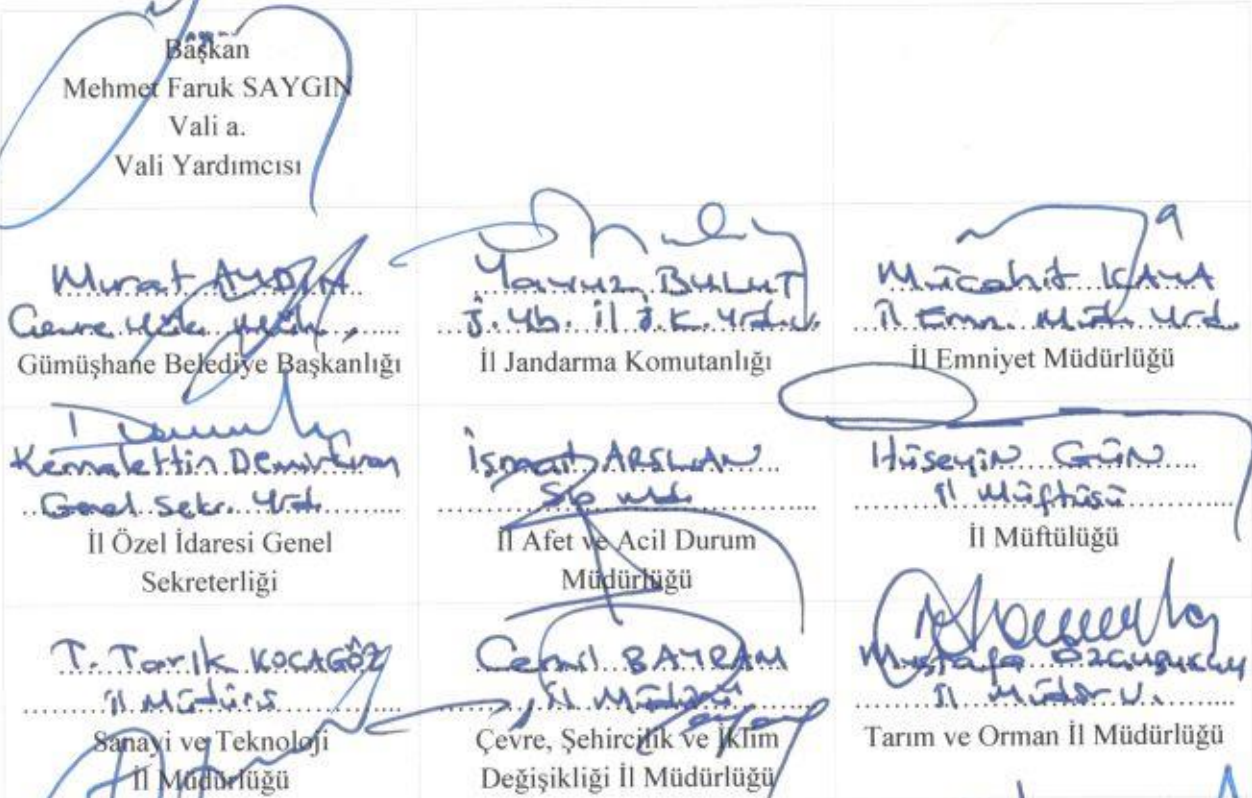 Başkan
Mehmet Faruk SAYGIN
Vali a.
Vali Yardımcısı
Murat AYDIN
Gümüşhane Belediye Başkanlığı
Yavuz BULUT
J. Yb. İl J. K. Yrd. V.
İl Jandarma Komutanlığı
Mücahit KAYA
İl Emn. Müd. Yrd.
İl Emniyet Müdürlüğü
Kemalettin Demirkıran
Genel Sekr. Yrd.
İl Özel İdaresi Genel
Sekreterliği
İsmail ARSLAN
İl Afet ve Acil Durum
Müdürlüğü
Hüseyin GÜN
İl Müftüsü
İl Müftülüğü
T. Tarık KOCAGÖZ
İl Müdürü
Sanayi ve Teknoloji
İl Müdürlüğü
Cemil BAYRAM
İl Müdürü
Çevre, Şehircilik ve İklim
Değişikliği İl Müdürlüğü
Mustafa
İl Müdür V.
Tarım ve Orman İl Müdürlüğü